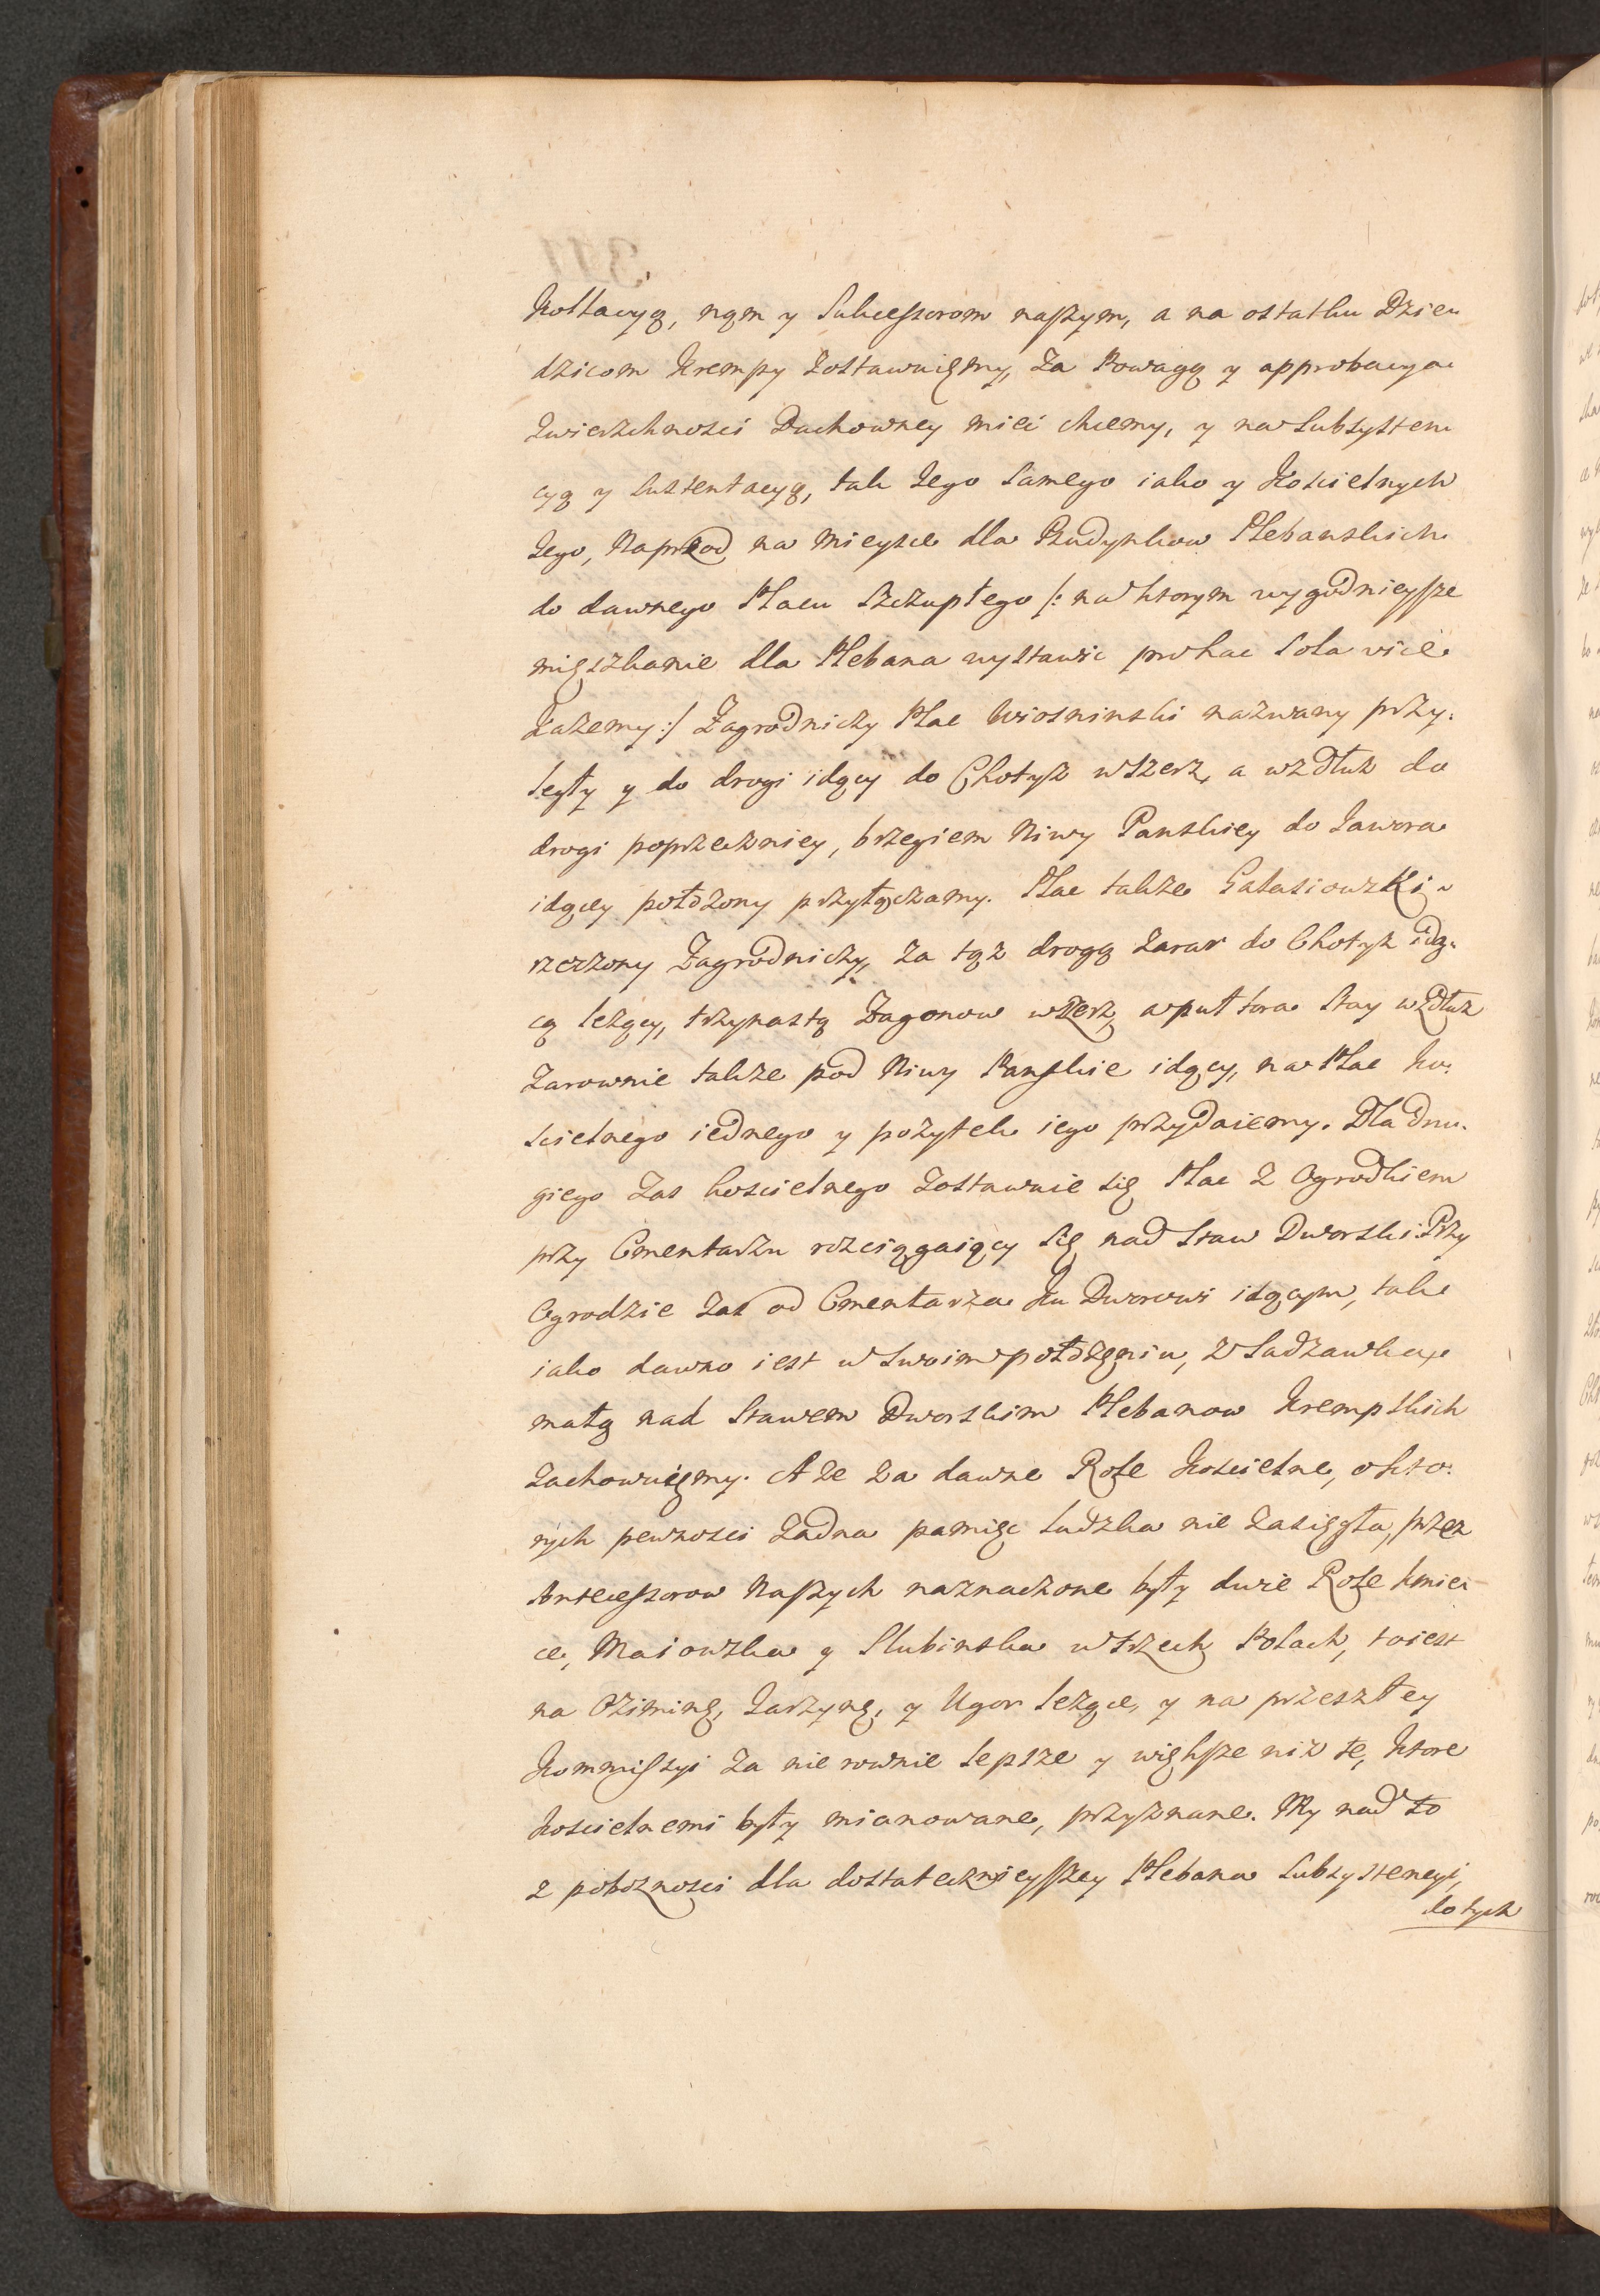 Kollacyą, nąm y Sukcessorom naszym, a na ostatku Dzie-
dzicom Krempy Zostawuięmy, Za Powagą y approbacyą
Zwierzchnosci Duchowney mieć chcemy, y na Subsysten
cyą y Sustentacyą, tak Jego Samego iako y Koscielnych
Jego, Naprzod na Mieysce dla Budynkow Plebanskich
do dawnego Placu Szczupłego /: na ktorym wygodnieysze
mięszkanie dla Plebana wystawic pro hac Sola vice
Każemy :/ Zagrodniczy Plac Wiosninski nazwany przy-
legły y do drogi idący do Chotyz wszerz, a wzdłuz do
drogi poprzeczniey, brzegiem Niwy Panskiey do Jawora
idącey połozony przyłączamy. Plac także Galasiowzki
rzeczony Zagrodniczy, Za tąz drogą Zaraz do Chotyz idą-
cą leżący, trzynastą Zagonow wszerz, a puł tora Stay wzdłuz
Zarownie także pod Niwy Panskie idący, na Plac Ko-
scielnego iednego y pożytek iego przydaiemy. Dla dru-
giego Zas koscielnego Zostawuie się Plac z Ogrodkiem
przy Cmentarzu rozciągaiący się nad Staw Dworski. Przy
Ogrodzie Zas od Cmentarza Ku Dworowi idącym, tak
iako dawno iest w Swoim połozęniu, z Sadzawką
małą nad Stawem Dworskim Plebanow Krempskich
Zachowuięmy. A ze za dawne Role Koscielne, o kto-
rych pewnosci Zadna pamięc ludzka nie Zasięgła, przez
Antecessorow Naszych naznaczone były dwie Role kmie-
ce, Maiowska y Slubinska w trzech Polach, to iest
na Oziminę, Jarzynę, y Ugor leżące, y na przeszłey
Kommiszyi Za nie rownie lepsze y większe niz te, Ktore
koscielnemi były mianowane, przyznane. My nad to
z poboznosci dla dostatecznieyszey Plebana Subzystencyi,
do tych